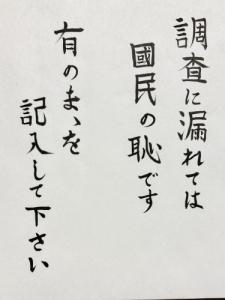 調査に漏れては
國民の恥です
有のまゝを
記入して下さい